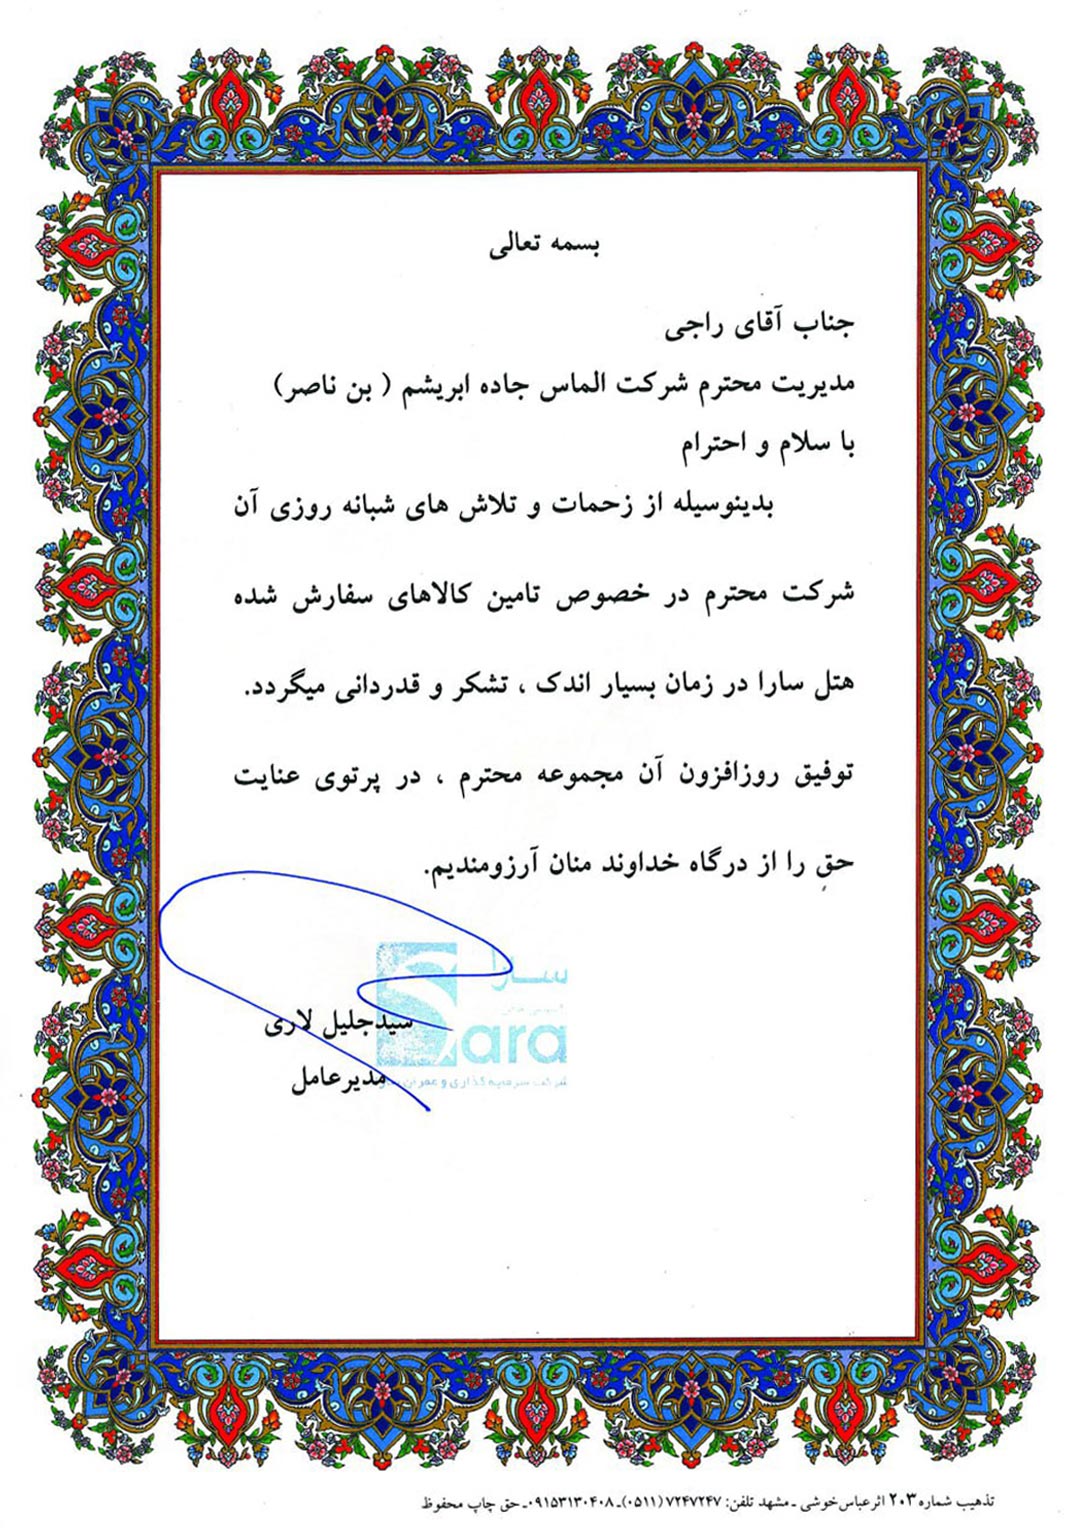 بسمه تعالی
جناب آقای راجی
مدیریت محترم شرکت الماس جاده ابریشم ( بن ناصر)
با سلام و احترام
بدینوسیله از زحمات و تلاش های شبانه روزی آن
شرکت محترم در خصوص تامین کالاهای سفارش شده
هتل سارا در زمان بسیار اندک ، تشکر و قدردانی میگردد.
توفیق روزافزون آن مجموعه محترم ، در پرتوی عنایت
حقِ را از درگاه خداوند منان آرزومندیم.
سارا
Sara
شرکت سرمایه گذاری و عمران
سیدجلیل لاری
مدیرعامل
تذهیب شماره ۲۰۳ اثرعباس خوشی ـ مشهد تلفن: ۷۲۴۷۲۴۷ (۰۵۱۱)ـ ۰۹۱۵۳۱۳۰۴۰۸ـ حق چاپ محفوظ